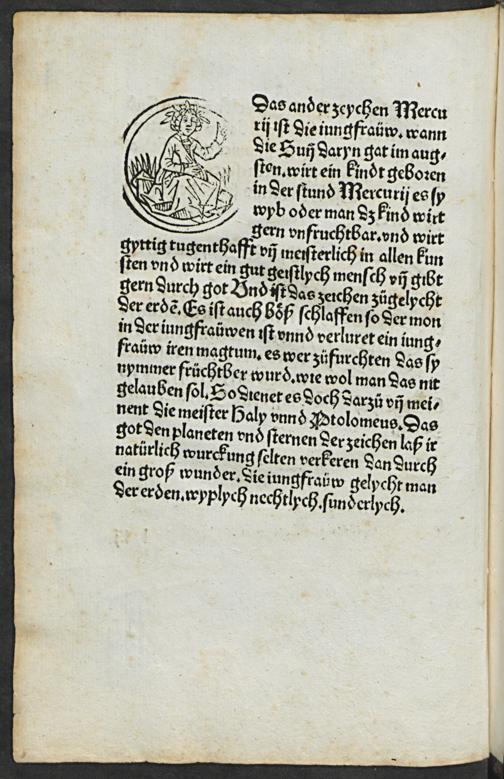 Das ander zeychen Mercu
rij ist die iungfraüw. wann
die Suñ daryn gat im aug⸗
sten. wirt ein kindt geboren
in der stund Mercurij es sy
wyb oder man dz kind wirt
gern vnfruchtbar. vnd wirt
gyttig tugenthafft vñ meisterlich in allen kun
sten vnd wirt ein gut geistlych mensch vñ gibt
gern durch got Vnd ist das zeichen zůgelycht
der erdē. Es ist auch bȯß schlaffen so der mon
in der iungfraüwen ist vnnd verluret ein iung⸗
fraüw iren magtum. es wer zůfurchten das sy
nymmer frůchtber wurd. wie wol man das nit
gelauben sol. So dienet es doch darzů vñ mei⸗
nent die meister Haly vnnd Ptolomeus. Das
got den planeten vnd sternen der zeichen laß ir
natürlich wurckung selten verkeren dan durch
ein groß wunder. die iungfraüw gelycht man
der erden. wyplych nechtlych. sunderlych.